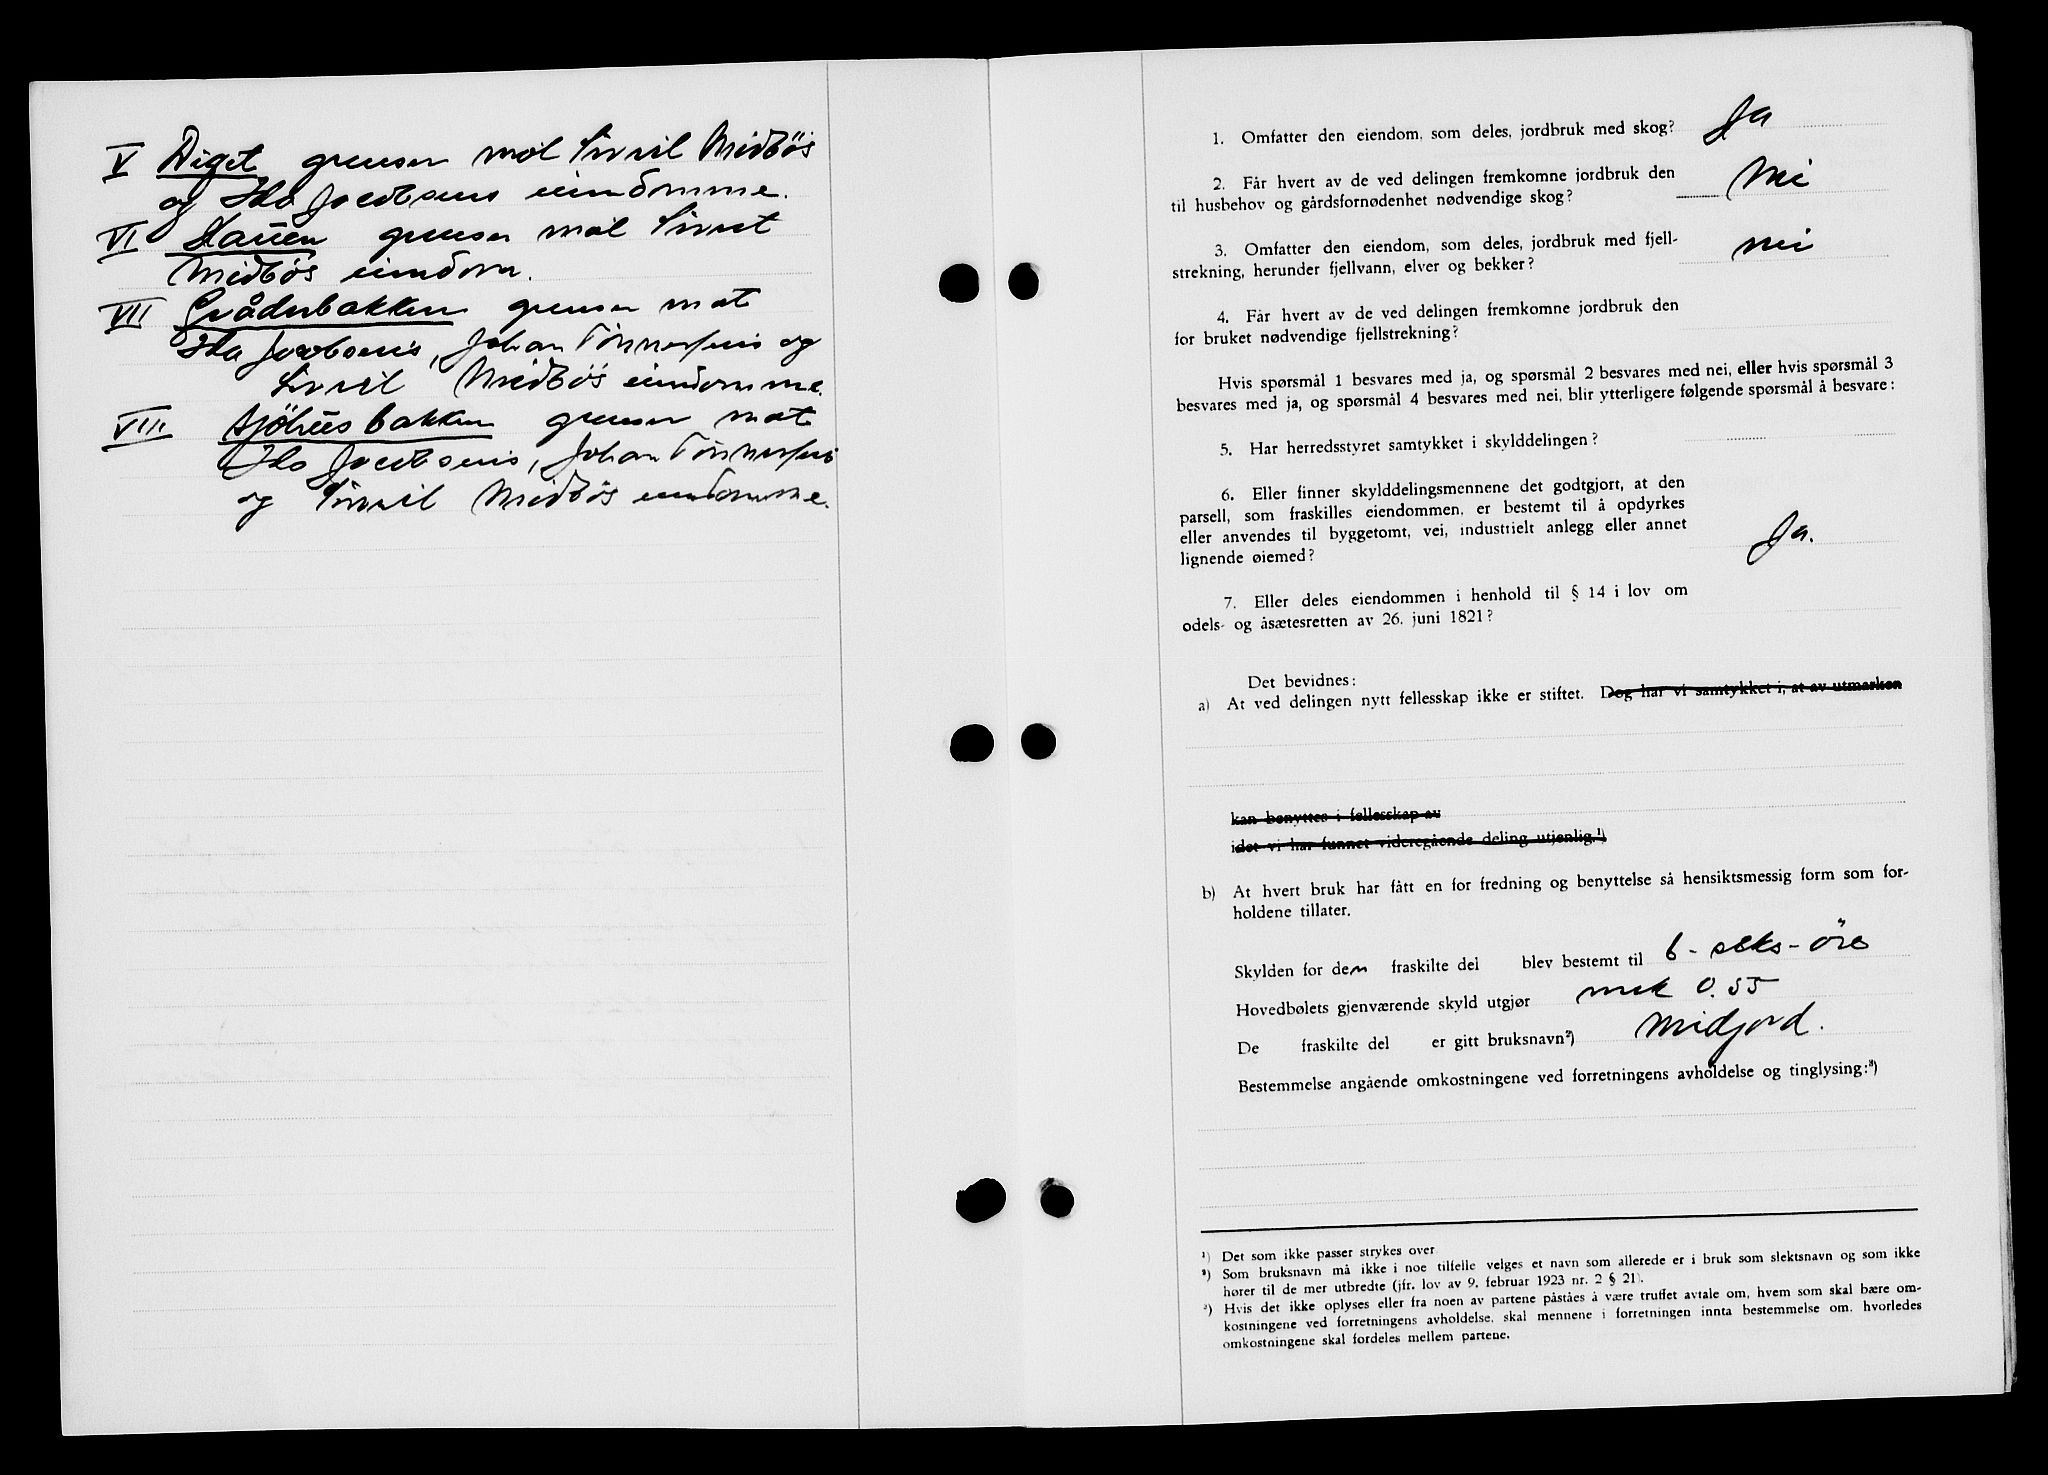 V Diget grenser mot Sivert Midbøs
og Ida Jacobsens eiendomme.
VI Hauen grenser mot Sivert
Midbøs eiendom.
VII bakken grenser mot
Ida Jacobsens, Johan Tønnesens og
Sivert Midbøs eiendomme.
VIII Sjøhusbakken grenser mot
Ida Jacobsens, Johan Tønnesens
og Sivert Midbøs eiendomme.
1. Omfatter den eiendom, som deles, jordbruk med skog? Ja
2. Får hvert av de ved delingen fremkomne jordbruk den
til husbehov og gårdsfornødenhet nødvendige skog? Nei
3. Omfatter den eiendom, som deles, jordbruk med fjell-
strekning, herunder fjellvann, elver og bekker? nei
4. Får hvert av de ved delingen fremkomne jordbruk den
for bruket nødvendige fjellstrekning?
Hvis spørsmål 1 besvares med ja, og spørsmål 2 besvares med nei, eller hvis spørsmål 3
besvares med ja, og spørsmål 4 besvares med nei, blir ytterligere følgende spørsmål å besvare:
5. Har herredsstyret samtykket i skylddelingen?
6. Eller finner skylddelingsmennene det godtgjort, at den
parsell, som fraskilles eiendommen, er bestemt til å opdyrkes
eller anvendes til byggetomt, vei, industrielt anlegg eller annet
lignende øiemed? Ja.
7. Eller deles eiendommen i henhold til § 14 i lov om
odels- og åsætesretten av 26. juni 1821?
Det bevidnes:
a) At ved delingen nytt fellesskap ikke er stiftet. Dog har vi samtykket i, at av utmarken
kan benyttes i fellesskap av
idet vi har funnet videregående deling utjenlig.¹)
b) At hvert bruk har fått en for fredning og benyttelse så hensiktsmessig form som for-
holdene tillater.
Skylden for den fraskilte del blev bestemt til 6 - seks - øre
Hovedbølets gjenværende skyld utgjør mrk 0.55
De fraskilte del er gitt bruksnavn²) Midjord.
Bestemmelse angående omkostningene ved forretningens avholdelse og tinglysing:³)
¹) Det som ikke passer strykes over
²) Som bruksnavn må ikke i noe tilfelle velges et navn som allerede er i bruk som slektsnavn og som ikke
hører til de mer utbredte (jfr. lov av 9. februar 1923 nr. 2 § 21).
³) Hvis det ikke oplyses eller fra noen av partene påståes å være truffet avtale om, hvem som skal bære om-
kostningene ved forretningens avholdelse, skal mennene i forretningen innta bestemmelse om, hvorledes
omkostningene skal fordeles mellem partene.